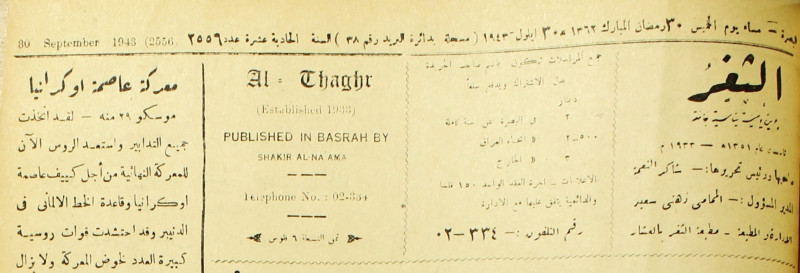 البصرة — مساء يوم الخميس ٣٠ رمضان المبارك ١٣٦٢ هـ ٣٠ ايلول ١٩٤٣ ( مسجلة بدائرة البريد رقم ٣٨ ) السنة الحادية عشرة عدد ٢٥٥٩ 30 September 1943 (2556.
الثغر
تأسست عام ١٣٥١ هـ — ١٩٣٣ م
صاحبها ورئيس تحريرها :— شاكر النعمة
المدير المسؤول :— المحامي زهدي سعيد
الادارة و المطبعة - مطبعة الثغر بالعشار
جميع المراسلات تكون باسم صاحب الجريدة
بدل الاشتراك ويدفر سلفاً
دينار
٢ في البصرة عن سنة كاملة
٢-٥٠٠ « انحاء العراق
٣ « الخارج
الاعلانات - اجرة العقد الواحد ١٥٠ فلسا
والدائمية يتفق عليها مع الادارة
رقم التلفون :— ٣٣٤-٠٢
Al - Thaghr
(Established 1933)
PUBLISHED IN BASRAH BY
SHAKIR AL-NA'AMA
Telephone No. : 02-334
ثمن النسخة ٦ فلوس
معركة عاصمة اوكرانيا
موسكو ٢٩ منه — لقد اتخذت
جميع التدابير واستعد الروس الآن
للمعركة النهائية من أجل كييف عاصمة
اوكرانيا وقاعدة الخط الالماني في
الدنيبر وقد احتشدت قوات روسية
كبيرة العدد لخوض المعركة ولا يزال